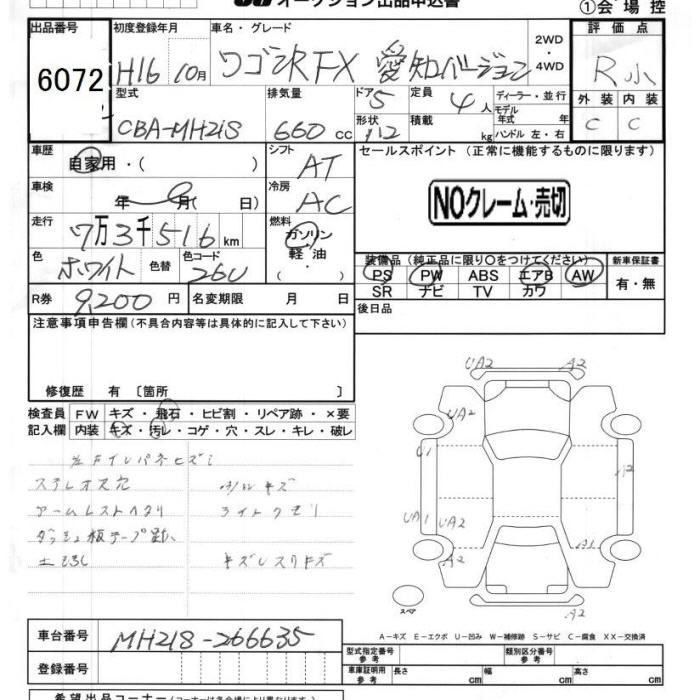 オークション出品申込書
①会場控
出品番号 初度登録年月 車名・グレード 評価点
6072 H16 10月 ワゴンR FX 愛知バージョン 2WD・4WD R 小
型式 排気量 ドア 5 定員 4人 ディーラー・並行 外装 内装
CBA-MH21S 660cc 形状 積載 kg モデル年式 年 ハンドル 左・右 C C
車歴 自家用・( ) シフト AT セールスポイント(正常に機能するものに限ります)
車検 年 月( 日) 冷房 AC
NOクレーム・売切
走行 7万3千516km 燃料 ガソリン・軽油・
色 ホワイト 色替 色コード 26U
装備品(純正品に限り○をつけてください) 新車保証書
PS PW ABS エアB AW 有・無
SR ナビ TV カワ
R券 9,200円 名変期限 月 日 後日品
注意事項申告欄(不具合内容等は具体的に記入して下さい)
修復歴 有 〔箇所 〕
検査員 FW キズ・飛石・ヒビ割・リペア跡・×要
記入欄 内装 キズ・汚レ・コゲ・穴・スレ・キレ・破レ
ステレオ欠
アームレストヘタリ ライトクモリ
UA2 A2
UA2
U1 A2
UA1 UA2
A2 A1
A2
スペア
A−キズ E−エクボ U−凹み W−補修跡 S−サビ C−腐食 XX−交換済
車台番号 MH21S-266635
型式指定番号 参考 類別区分番号 参考
登録番号 車庫証明用 参考 長さ cm 幅 cm 高さ cm
希望出品コーナー(コーナーは各会場により異なります)